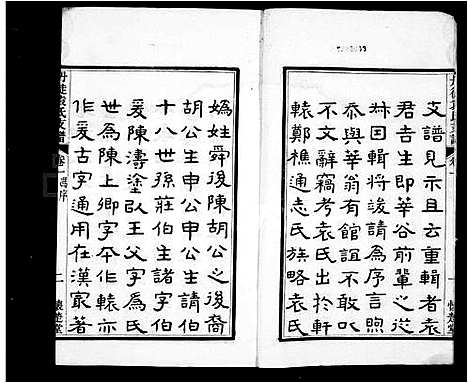 支譜見示且云重輯者袁
君吉生即華谷前輩之從
因輯將竣請為序言照
忝與華翁有館誼不敢以
不文辭竊考袁氏出於軒
轅鄭樵通志氏族略袁氏
媯姓舜後陳胡公之後裔
胡公生申公申公生靖伯
十八世孫莊伯生諸字伯
爰陳濤塗以王父字為氏
世為陳上卿字亦作轅亦
作爰古字通用在漢家著
丹徒袁氏支譜
卷一
序
二
懷楚堂